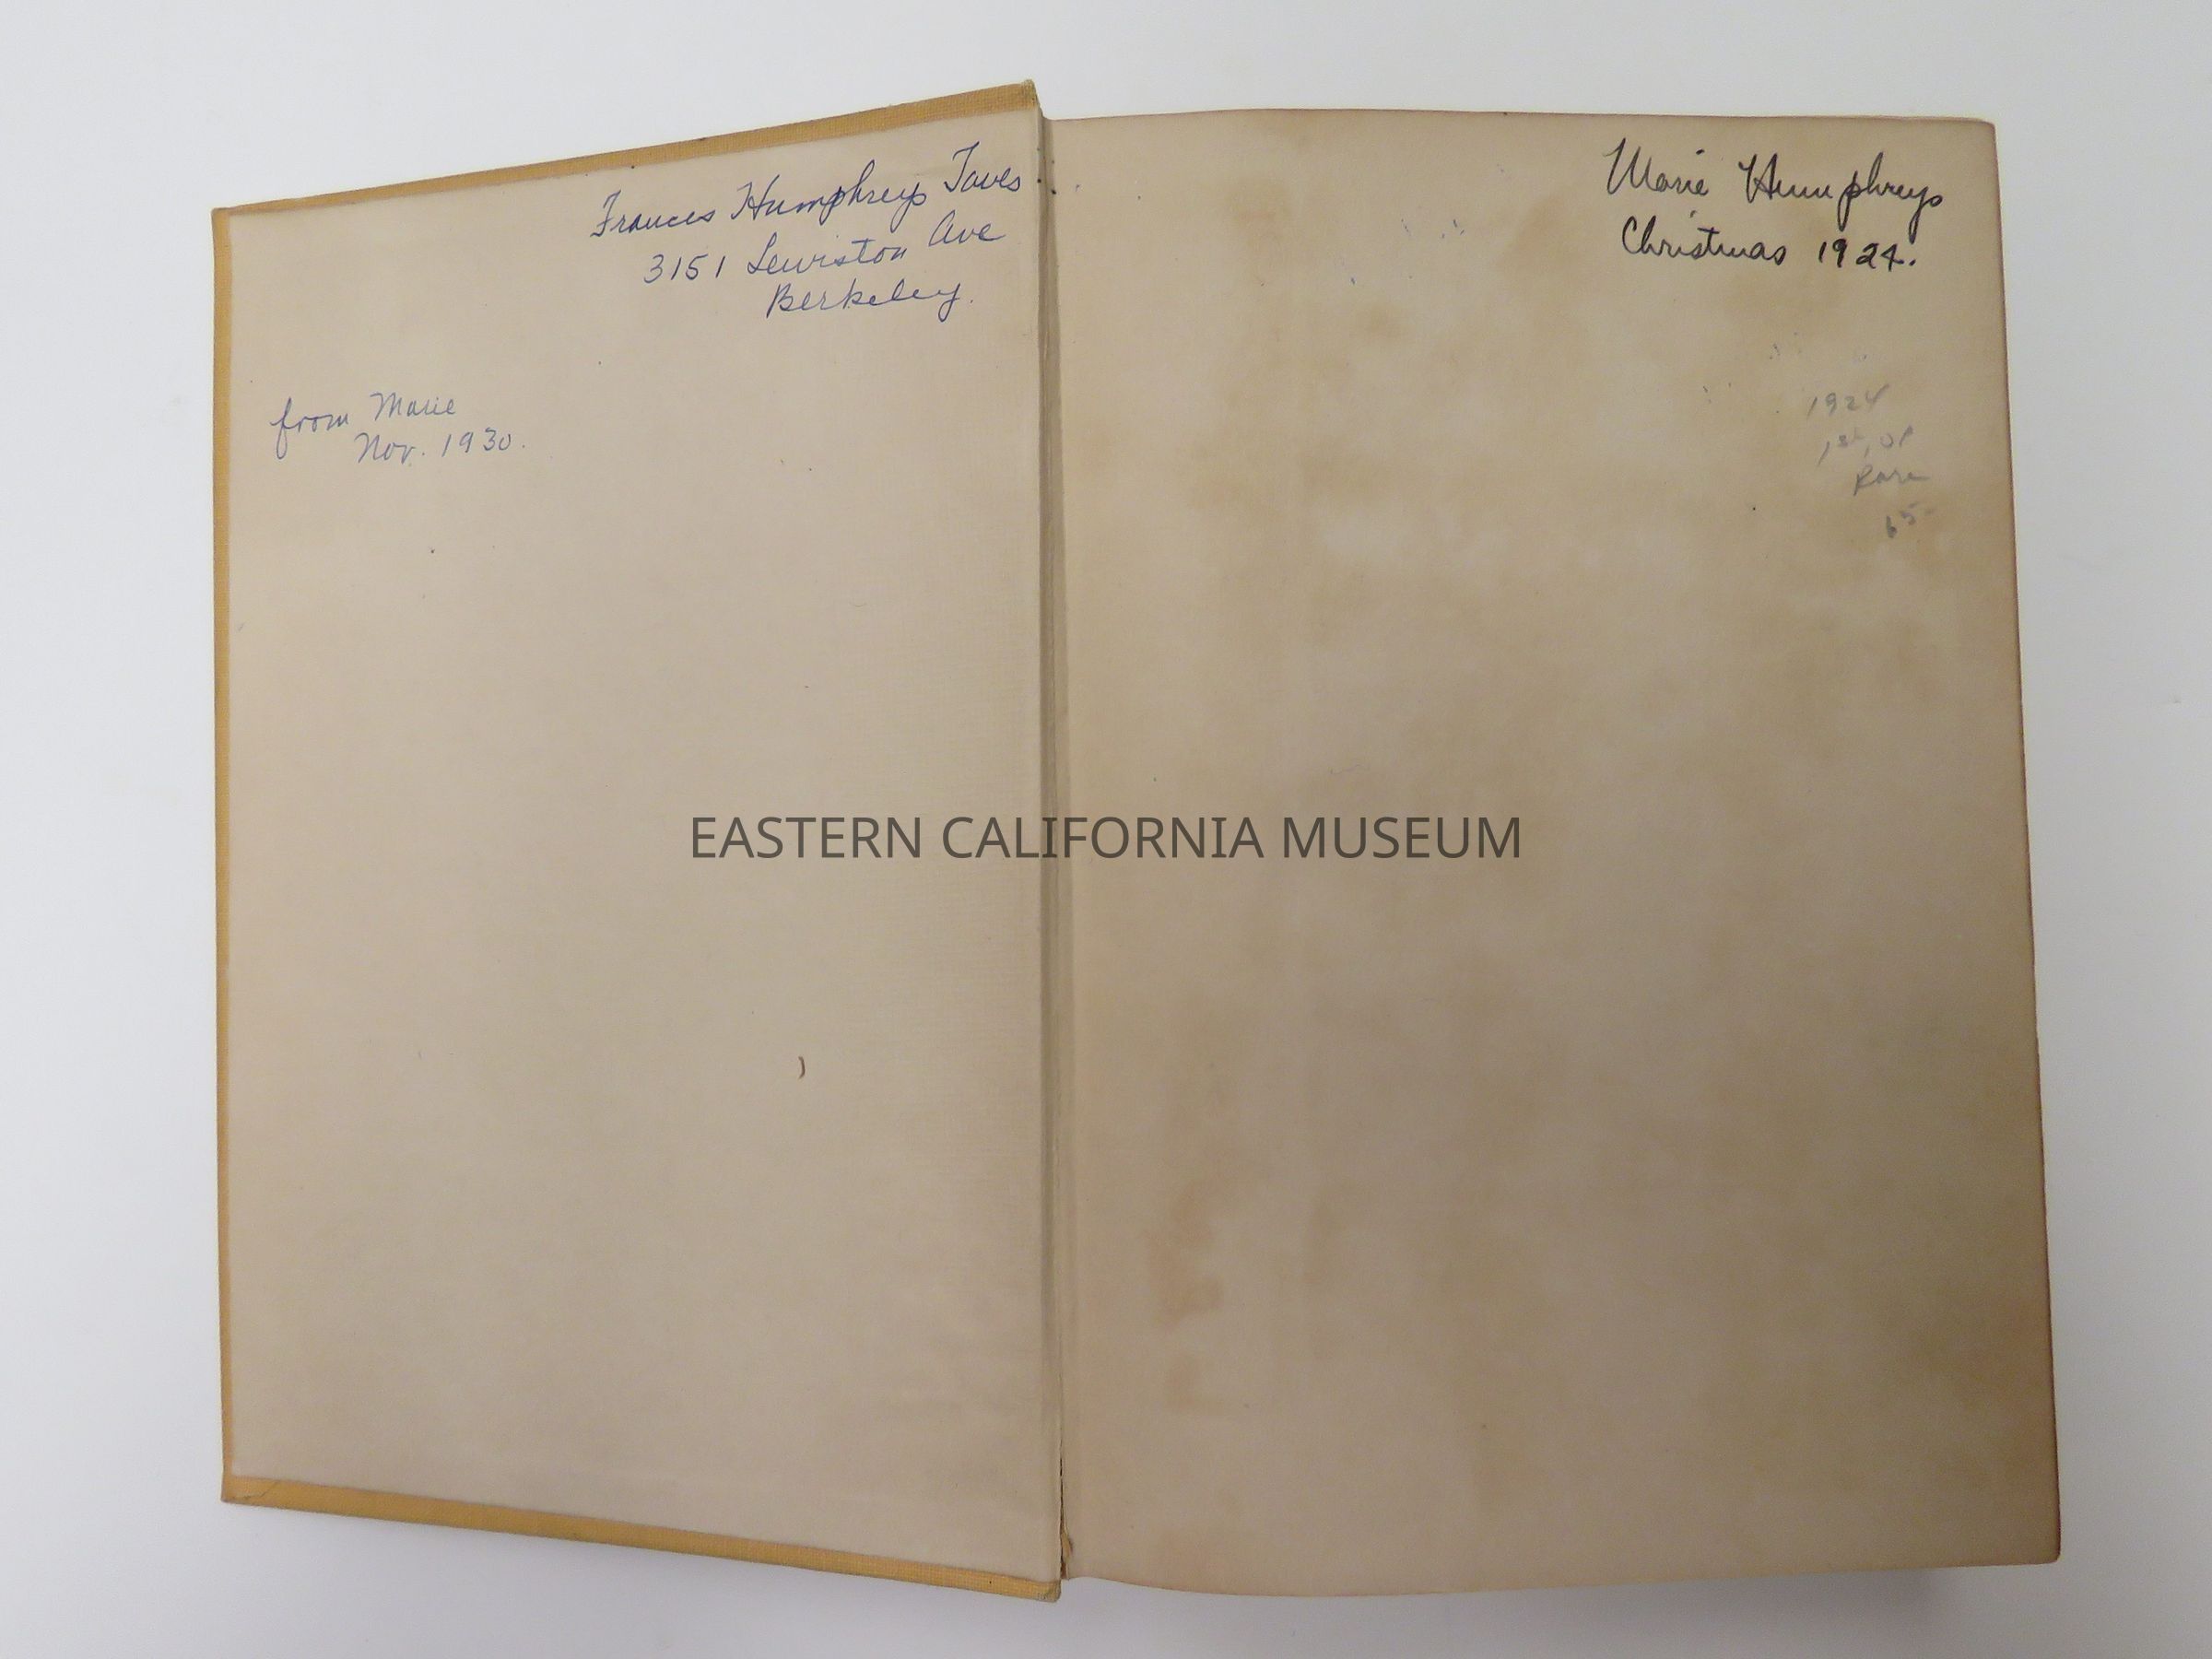 Frances Humphreys Taves
3151 Lewiston Ave
Berkeley.
from Marie
Nov. 1930.
Marie Humphreys
Christmas 1924.
1924
1st,
Rare
65-
EASTERN CALIFORNIA MUSEUM